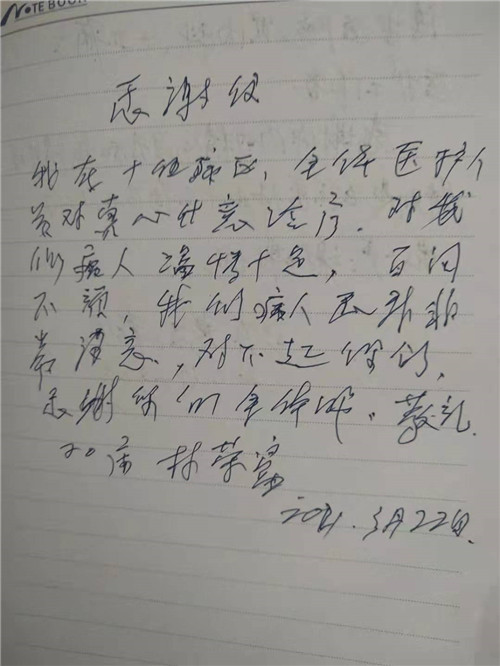 NOTE BOOK
感谢信
我在十四病区,全体医护人
员对真心什意诊疗.对我
们病人温情十足,百问
不烦,我们病人思非非
常满意,对不起你们,
感谢你们全体,敬礼.
20床 林荣富
2021.3月22日.